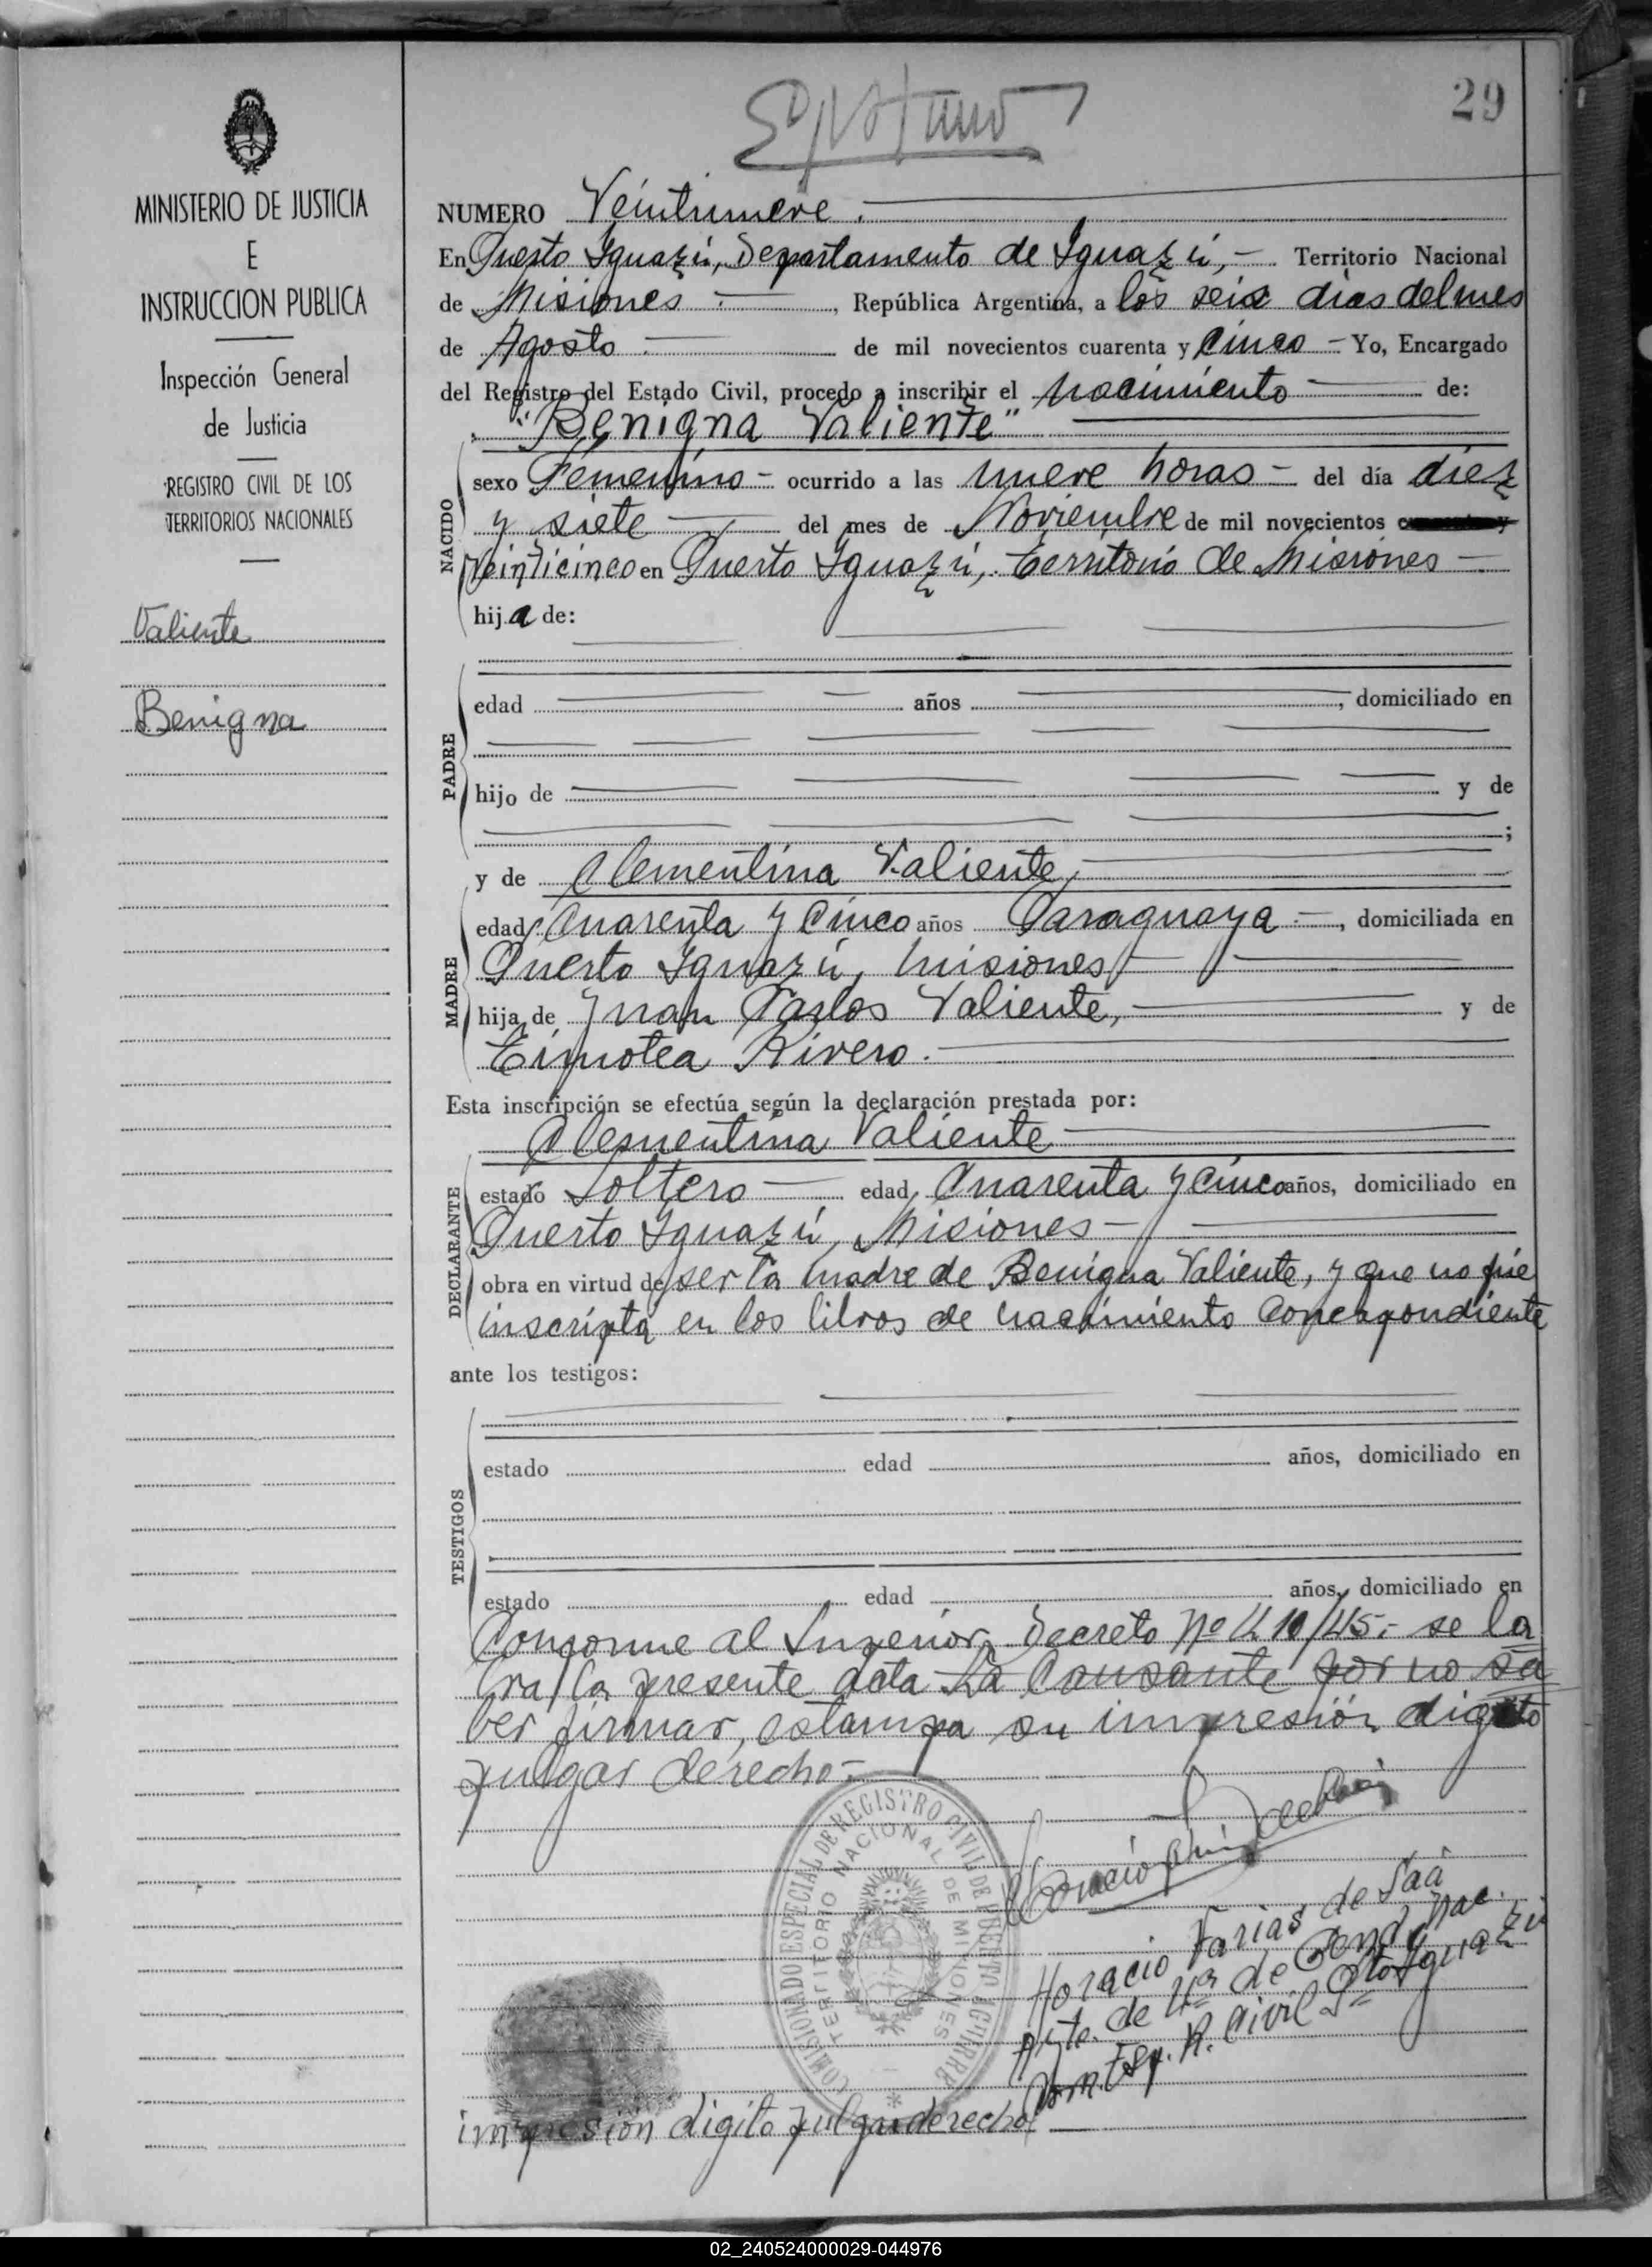 29
MINISTERIO DE JUSTICIA
E
INSTRUCCION PUBLICA
Inspección General
de Justicia
REGISTRO CIVIL DE LOS
TERRITORIOS NACIONALES
Valiente
Benigna
NUMERO Veintinueve.
En Puesto Iguazú, Departamento de Iguazú, Territorio Nacional
de Misiones, República Argentina, a los seis dias del mes
de Agosto de mil novecientos cuarenta y Cinco - Yo, Encargado
del Registro del Estado Civil, procedo a inscribir el nacimiento de:
"Benigna Valiente"
NACIDO
sexo Femenino - ocurrido a las nueve horas - del día diez
y siete del mes de Noviembre de mil novecientos
Veinticinco en Puerto Iguazú, Territorio de Misiones
hija de:
PADRE
edad años , domiciliado en
hijo de y de
;
y de Clementina Valiente,
MADRE
edad Cuarenta y Cinco años Paraguaya , domiciliada en
Puerto Iguazú, Misiones
hija de Juan Carlos Valiente, y de
Timotea Rivero.
Esta inscripción se efectúa según la declaración prestada por:
Clementina Valiente
DECLARANTE
estado Soltero edad Cuarenta y Cinco años, domiciliado en
Puerto Iguazú, Misiones
obra en virtud de ser la madre de Benigna Valiente, y que no fue
inscripta en los libros de nacimiento correspondiente
ante los testigos:
TESTIGOS
estado edad años, domiciliado en
estado edad años, domiciliado en
Conforme al Superior Decreto Nº 410/45.- se la
bra la presente acta La Causante por no sa
ber firmar, estampa su impresión digito
pulgar derecho.-
COMISIONADO ESPECIAL DE REGISTRO CIVIL DE PUERTO AGUIRRE
TERRITORIO NACIONAL DE MISIONES
Horacio Farias de Saá
Ayte. de 4ª de Gend. Nac.
Com. Esp. R. Civil Pto Iguazú
impresión digito pulgar derecho
02_240524000029-044976